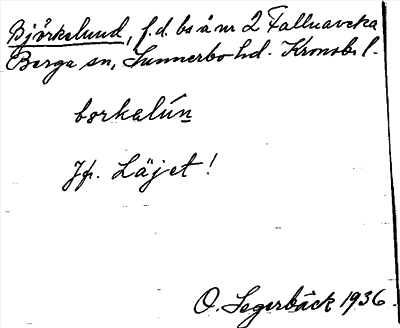 Björkelund, f.d. bs å nr 2 Fallnaveka
Berga sn, Sunnerbo hd. Kronob. l.
borkalún
Jfr. Läjet!
O. Segerbäck 1936.